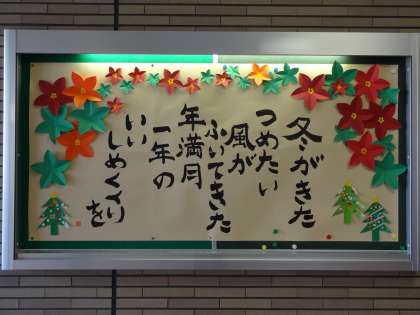 冬がきた
つめたい
風が
ふいてきた
年満月
一年の
いい
しめくくりを